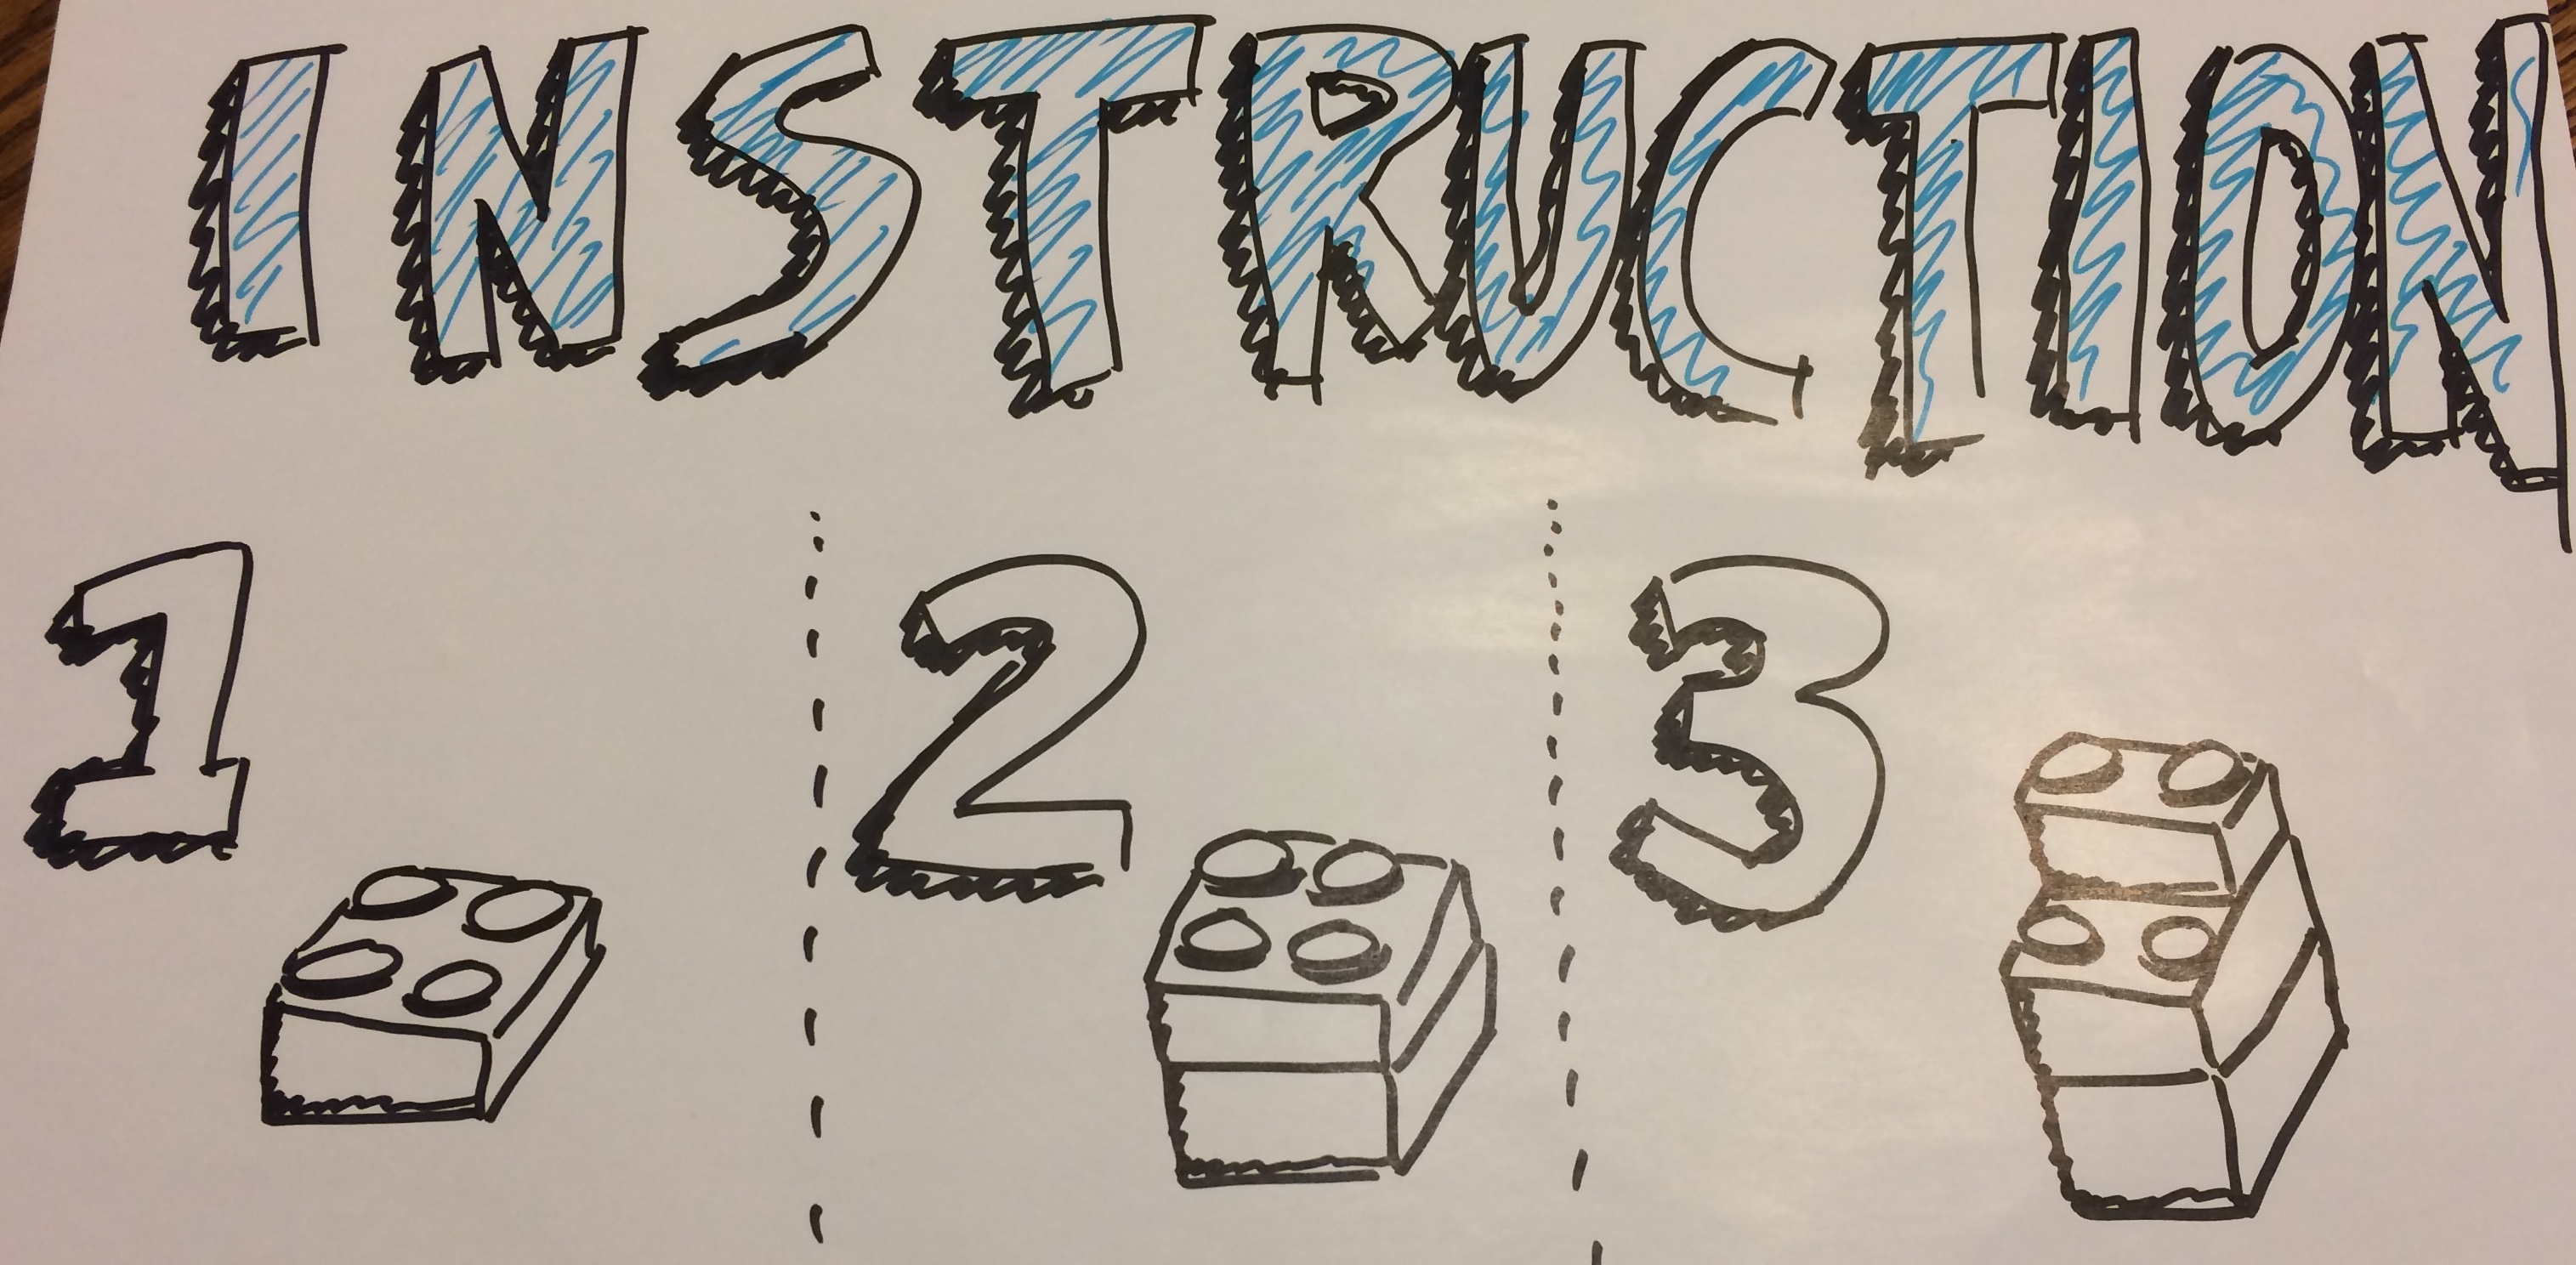 INSTRUCTION
1 2 3